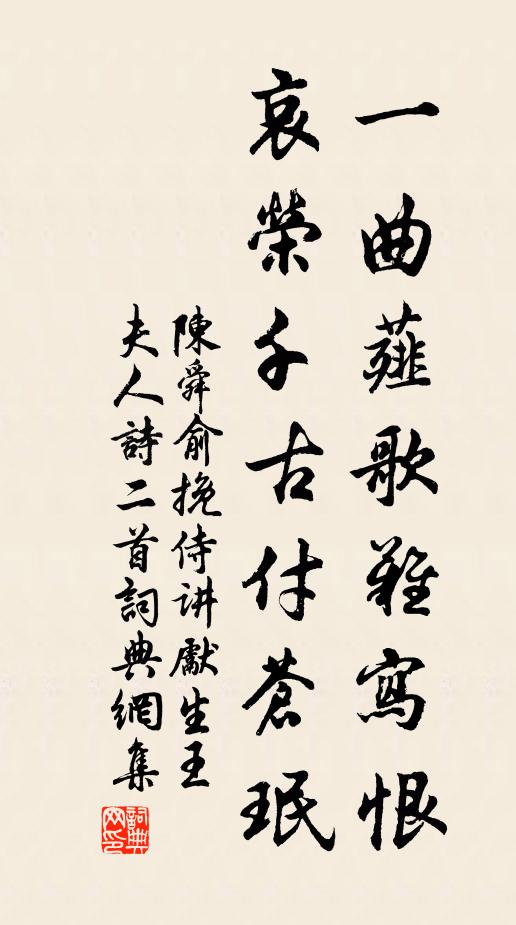 一曲薤歌難寫恨
哀榮千古付蒼珉
陳舜俞挽侍讲獻生王
夫人詩二首詞典網集
詞典网印